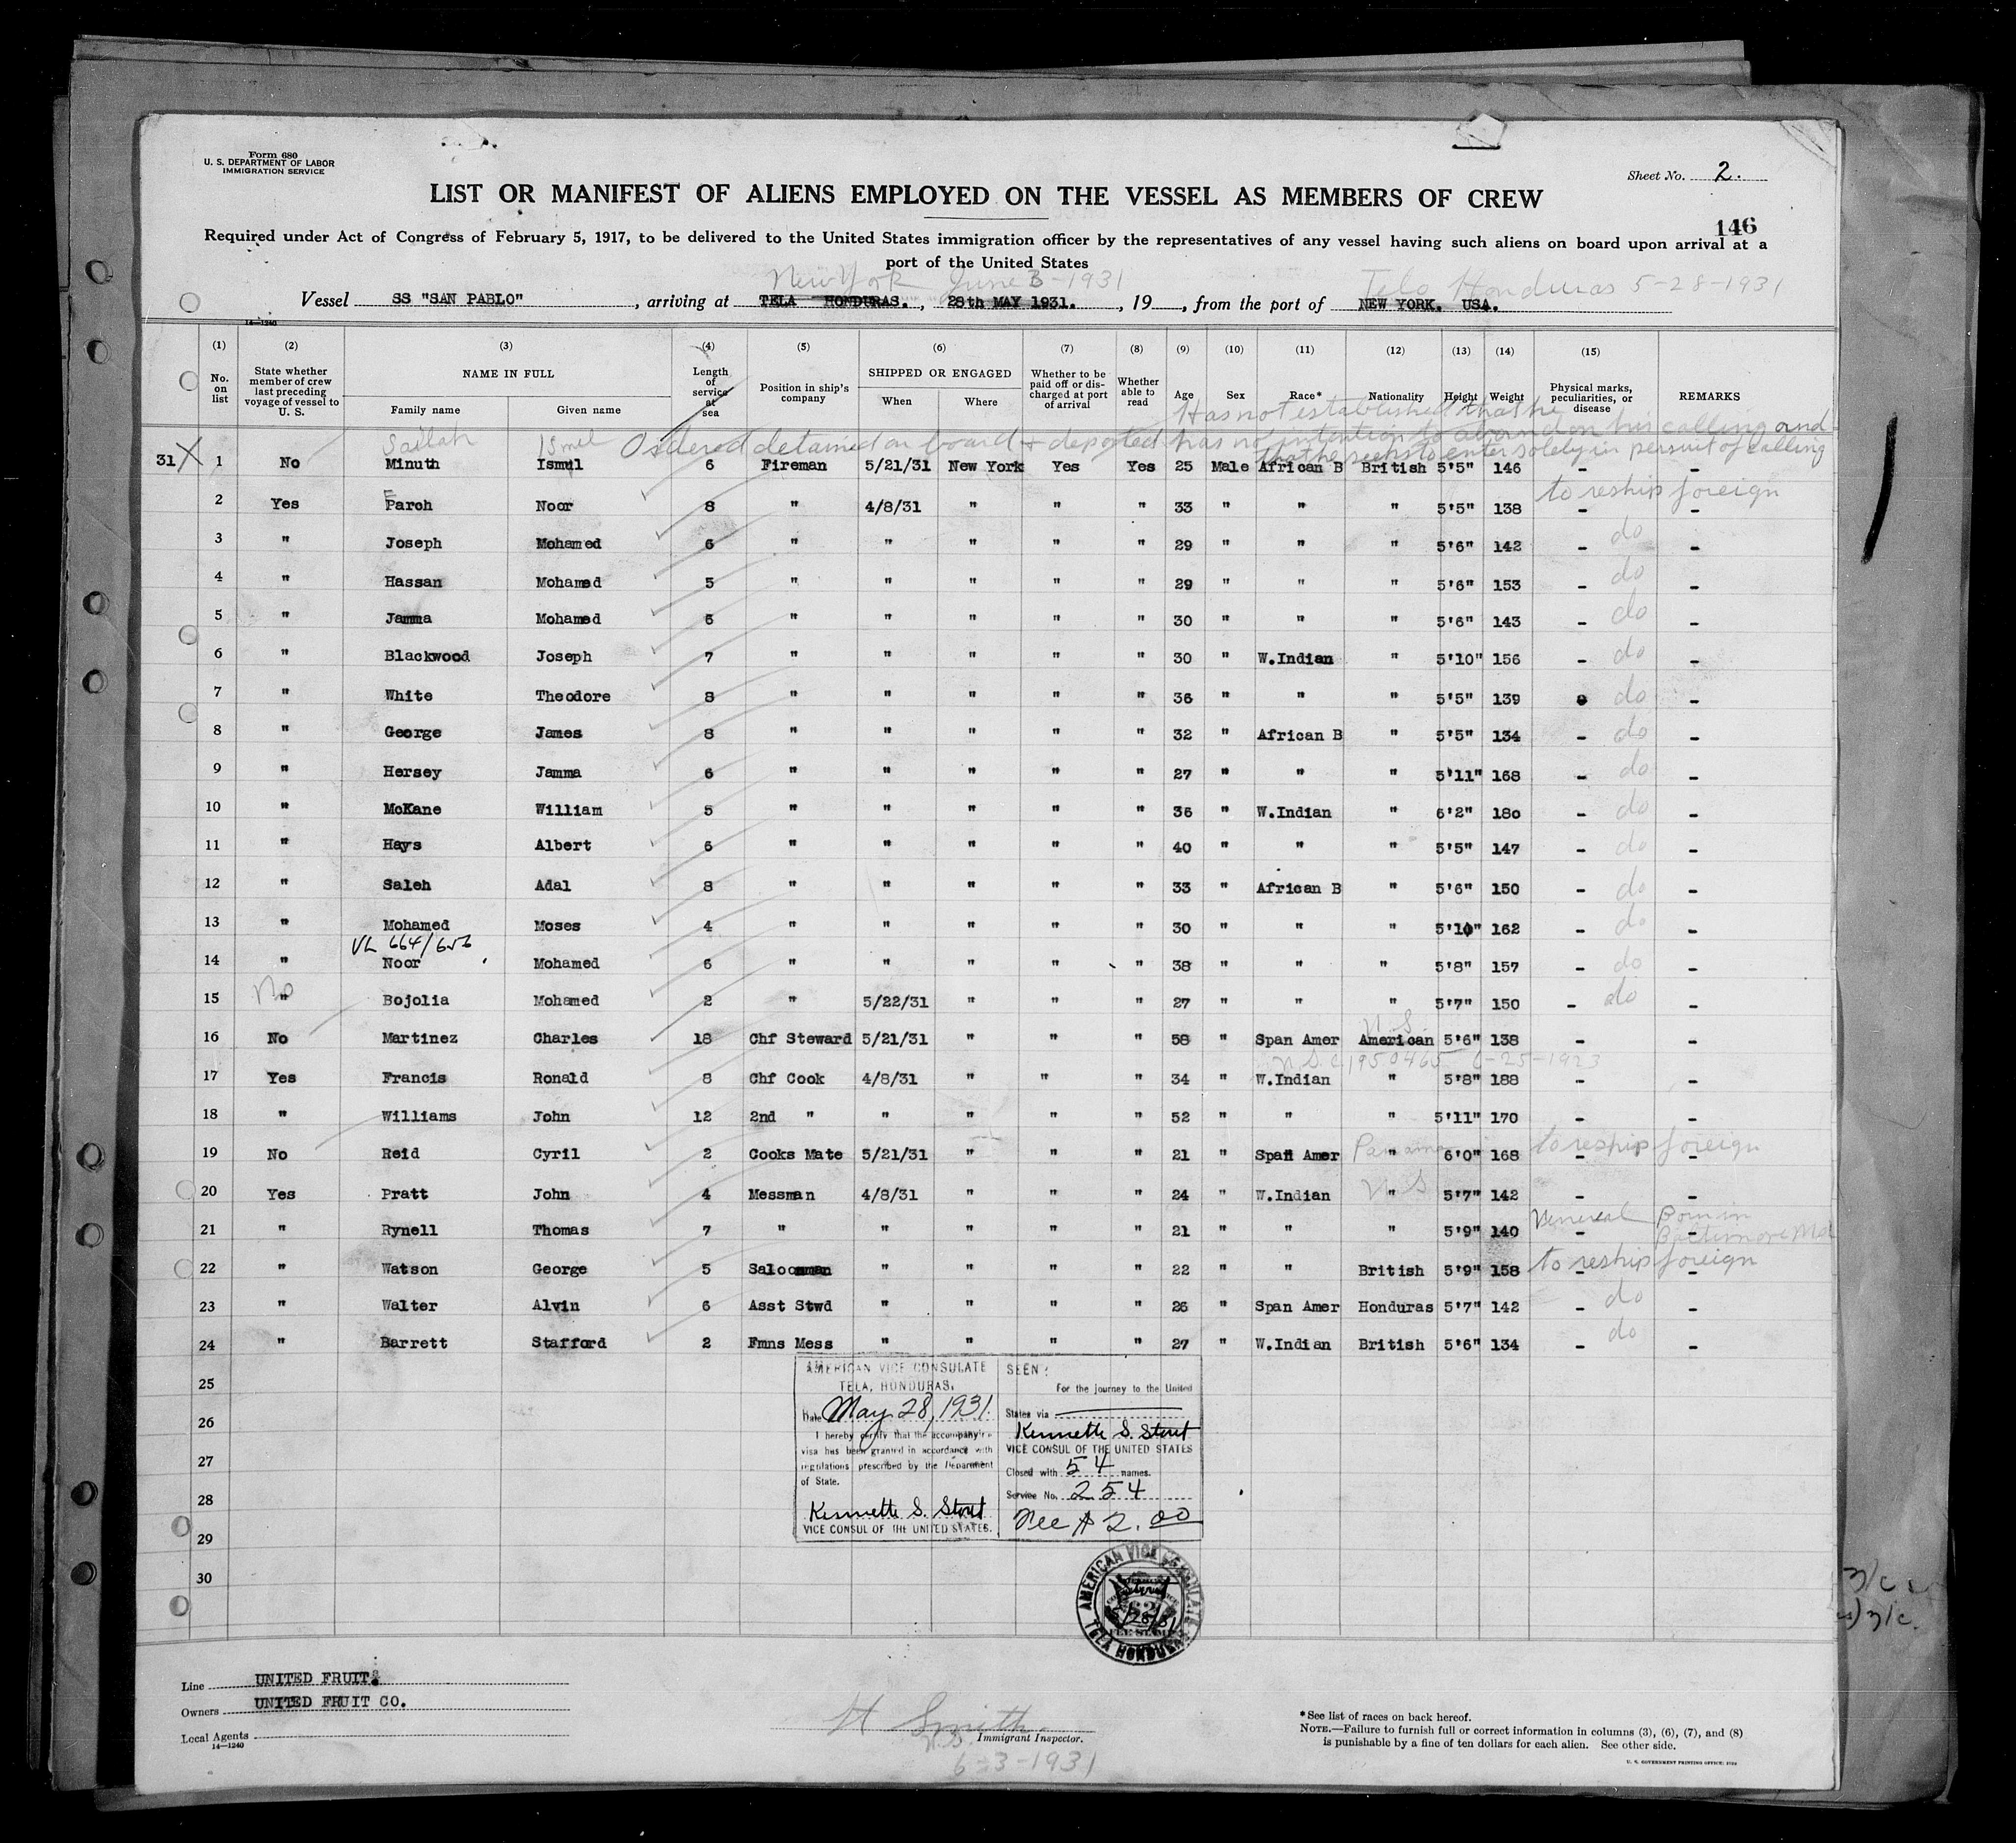 Form 680
U. S. DEPARTMENT OF LABOR
IMMIGRATION SERVICE
Sheet No. 2.
LIST OR MANIFEST OF ALIENS EMPLOYED ON THE VESSEL AS MEMBERS OF CREW
146
Required under Act of Congress of February 5, 1917, to be delivered to the United States immigration officer by the representatives of any vessel having such aliens on board upon arrival at a
port of the United States
New York June 3-1931 Tela Honduras 5-28-1931
Vessel SS "SAN PABLO" , arriving at TELA HONDURAS. , 28th MAY 1931. , 19 , from the port of NEW YORK. USA.
14—1240
(1) (2) (3) (4) (5) (6) (7) (8) (9) (10) (11) (12) (13) (14) (15)
No. on list State whether member of crew last preceding voyage of vessel to U. S. NAME IN FULL Family name Given name Length of service at sea Position in ship's company SHIPPED OR ENGAGED When Where Whether to be paid off or discharged at port of arrival Whether able to read Age Sex Race* Nationality Height Weight Physical marks, peculiarities, or disease REMARKS
Has not established that he
Sailah Ismel Ordered detained on board & deported has no intention to abandon his calling and
that he seeks to enter solely in persuit of calling
31 X 1 No Minuth Ismul 6 Fireman 5/21/31 New York Yes Yes 25 Male African B British 5'5" 146 - -
to reship foreign
2 Yes Faroh Noor 8 " 4/8/31 " " " 33 " " " 5'5" 138 - -
3 " Joseph Mohamed 6 " " " " " 29 " " " 5'6" 142 - do -
4 " Hassan Mohamed 5 " " " " " 29 " " " 5'6" 153 - do -
5 " Jamma Mohamed 6 " " " " " 30 " " " 5'6" 143 - do -
6 " Blackwood Joseph 7 " " " " " 30 " W.Indian " 5'10" 156 - do -
7 " White Theodore 8 " " " " " 36 " " " 5'5" 139 do -
8 " George James 8 " " " " " 32 " African B " 5'5" 134 - do -
9 " Hersey Jamma 6 " " " " " 27 " " " 5'11" 168 - do -
10 " McKane William 5 " " " " " 36 " W.Indian " 6'2" 180 - do -
11 " Hays Albert 6 " " " " " 40 " " " 5'5" 147 - do -
12 " Saleh Adal 8 " " " " " 33 " African B " 5'6" 150 - do -
13 " Mohamed Moses 4 " " " " " 30 " " " 5'10" 162 - do -
VL 664/656
14 " Noor Mohamed 6 " " " " " 38 " " " 5'8" 157 - do -
15 No " Bojolia Mohamed 2 " 5/22/31 " " " 27 " " " 5'7" 150 - do -
U.S
16 No Martinez Charles 18 Chf Steward 5/21/31 " " " 58 " Span Amer American 5'6" 138 - -
N.S.C 1950465 6-25-1923
17 Yes Francis Ronald 8 Chf Cook 4/8/31 " " " 34 " W.Indian " 5'8" 188 - -
18 " Williams John 12 2nd " " " " " 52 " " " 5'11" 170 - -
19 No Reid Cyril 2 Cooks Mate 5/21/31 " " " 21 " Span Amer Panama " 6'0" 168 to reship foreign
20 Yes Pratt John 4 Messman 4/8/31 " " " 24 " W.Indian U S " 5'7" 142 - -
21 " Rynell Thomas 7 " " " " " 21 " " " 5'9" 140 Venereal Born in Baltimore Md
22 " Watson George 5 Saloonman " " " " 22 " " British 5'9" 158 to reship foreign
23 " Walter Alvin 6 Asst Stwd " " " " 26 " Span Amer Honduras 5'7" 142 - do -
24 " Barrett Stafford 2 Fmns Mess " " " " 27 " W.Indian British 5'6" 134 - do -
25
26
27
28
29
30
AMERICAN VICE CONSULATE
TELA, HONDURAS.
Date May 28, 1931.
I hereby certify that the accompanying
visa has been granted in accordance with
regulations prescribed by the Department
of State.
Kennette S. Stout
VICE CONSUL OF THE UNITED STATES.
SEEN:
For the journey to the United
States via
Kennette S. Stout
VICE CONSUL OF THE UNITED STATES
Closed with 54 names.
Service No. 254
Fee $ 2.00
AMERICAN VICE CONSULATE
TELA HONDURAS
Line UNITED FRUIT.
Owners UNITED FRUIT CO.
Local Agents
14—1240
H Smith
U.S. Immigrant Inspector.
6-3-1931
*See list of races on back hereof.
NOTE.—Failure to furnish full or correct information in columns (3), (6), (7), and (8)
is punishable by a fine of ten dollars for each alien. See other side.
U. S. GOVERNMENT PRINTING OFFICE: